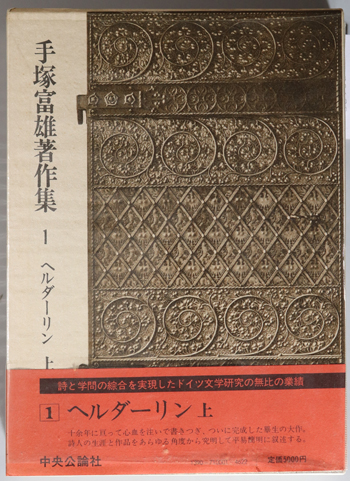 手塚富雄著作集
1
ヘルダーリン 上
詩と学問の綜合を実現したドイツ文学研究の無比の業績
1 ヘルダーリン 上
十余年に亘って心血を注いで書きつぎ、ついに完成した畢生の大作。
詩人の生涯と作品をあらゆる角度から究明して平易懇切に叙述する。
中央公論社